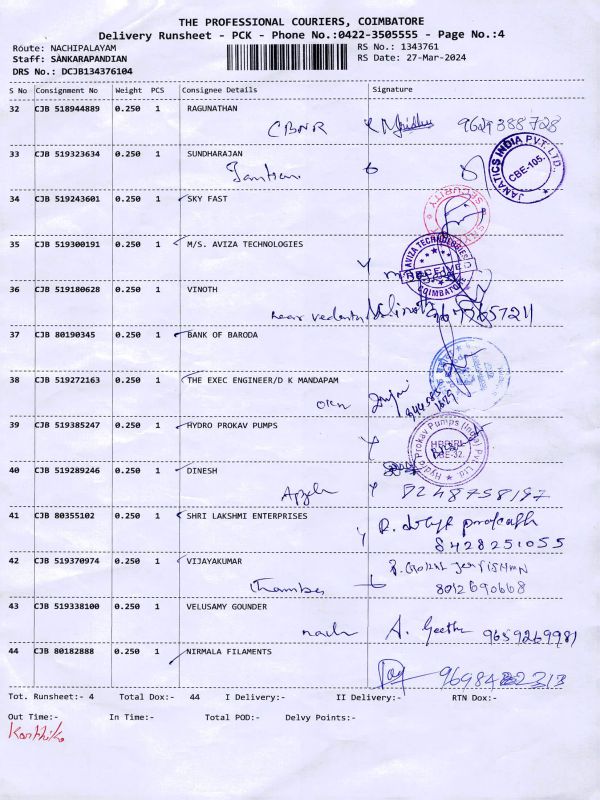 THE PROFESSIONAL COURIERS, COIMBATORE
Delivery Runsheet - PCK - Phone No.:0422-3505555 - Page No.:4
Route: NACHIPALAYAM
Staff: SANKARAPANDIAN
DRS No.: DCJB134376104
RS No.: 1343761
RS Date: 27-Mar-2024
S No Consignment No Weight PCS Consignee Details Signature
32 CJB 518944889 0.250 1 RAGUNATHAN
CBNR 9629388728
33 CJB 519323634 0.250 1 SUNDHARAJAN
JANATICS INDIA PVT. LTD., CBE-105.
34 CJB 519243601 0.250 1 SKY FAST
SECURITY
35 CJB 519300191 0.250 1 M/S. AVIZA TECHNOLOGIES
AVIZA TECHNOLOGIES RECEIVED COIMBATORE
36 CJB 519180628 0.250 1 VINOTH
near
37 CJB 80190345 0.250 1 BANK OF BARODA
38 CJB 519272163 0.250 1 THE EXEC ENGINEER/D K MANDAPAM
39 CJB 519385247 0.250 1 HYDRO PROKAV PUMPS
Hydro Prokav Pumps (India) Pvt. Ltd.
40 CJB 519289246 0.250 1 DINESH
8248758197
41 CJB 80355102 0.250 1 SHRI LAKSHMI ENTERPRISES
8428251055
42 CJB 519370974 0.250 1 VIJAYAKUMAR
8012690668
43 CJB 519338100 0.250 1 VELUSAMY GOUNDER
A. Geetha 9659269981
44 CJB 80182888 0.250 1 NIRMALA FILAMENTS
Tot. Runsheet:- 4 Total Dox:- 44 I Delivery:- II Delivery:- RTN Dox:-
Out Time:- In Time:- Total POD:- Delvy Points:-
Karthika